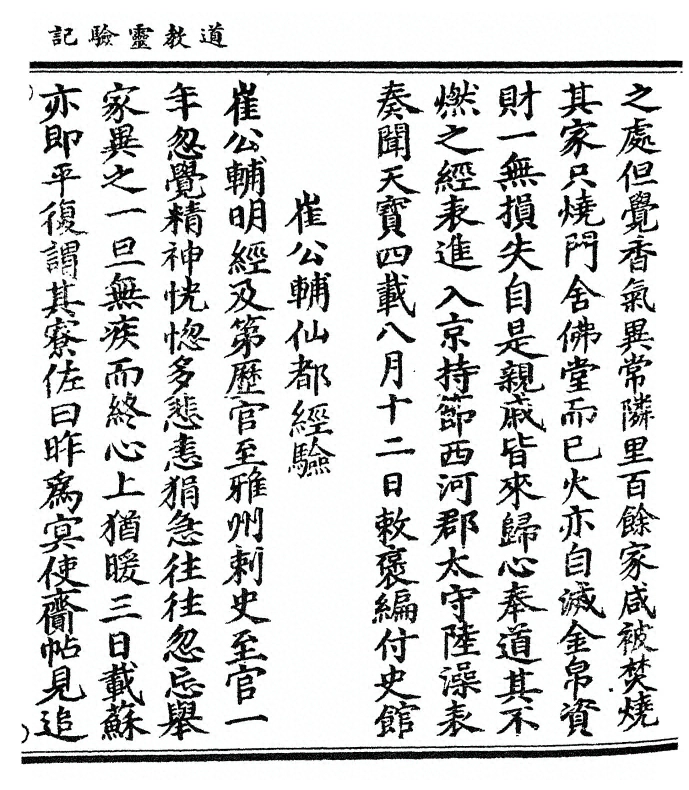 道教靈驗記
之處但覺香氣異常隣里百餘家咸被焚燒
其家只燒門舍佛堂而已火亦自滅金帛資
財一無損失自是親戚皆來歸心奉道其不
燃之經表進入京持節西河郡太守陸澡表
奏聞天寶四載八月十二日敕褒編付史館
崔公輔仙都經驗
崔公輔明經及第歷官至雅州刺史至官一
年忽覺精神恍惚多悲恚狷急往往忽忘舉
家異之一旦無疾而終心上猶暖三日載蘇
亦即平復謂其寮佐曰昨爲冥使齎帖見追